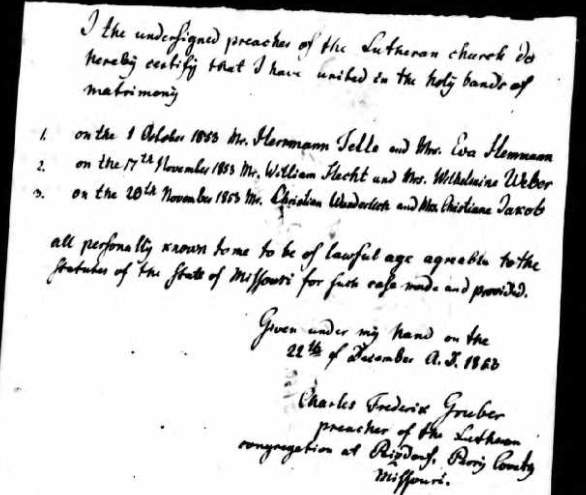 I the undersigned preacher of the Lutheran church do
hereby certify that I have united in the holy bands of
matrimony
1. on the 1 October 1853 Mr. Herrmann Telle and Mrs. Eva Hemmann
2. on the 17th November 1853 Mr. William Hecht and Mrs. Wilhelmine Weber
3. on the 20th November 1853 Mr. Christian Wunderlich and Mrs. Christiane Jakob
all personally known to me to be of lawful age agreable to the
Statutes of the State of Missouri for such case made and provided.
Given under my hand on the
22th of December A. D. 1853
Charles Frederik Gruber
preacher of the Lutheran
congregation at Perry County
Missouri.